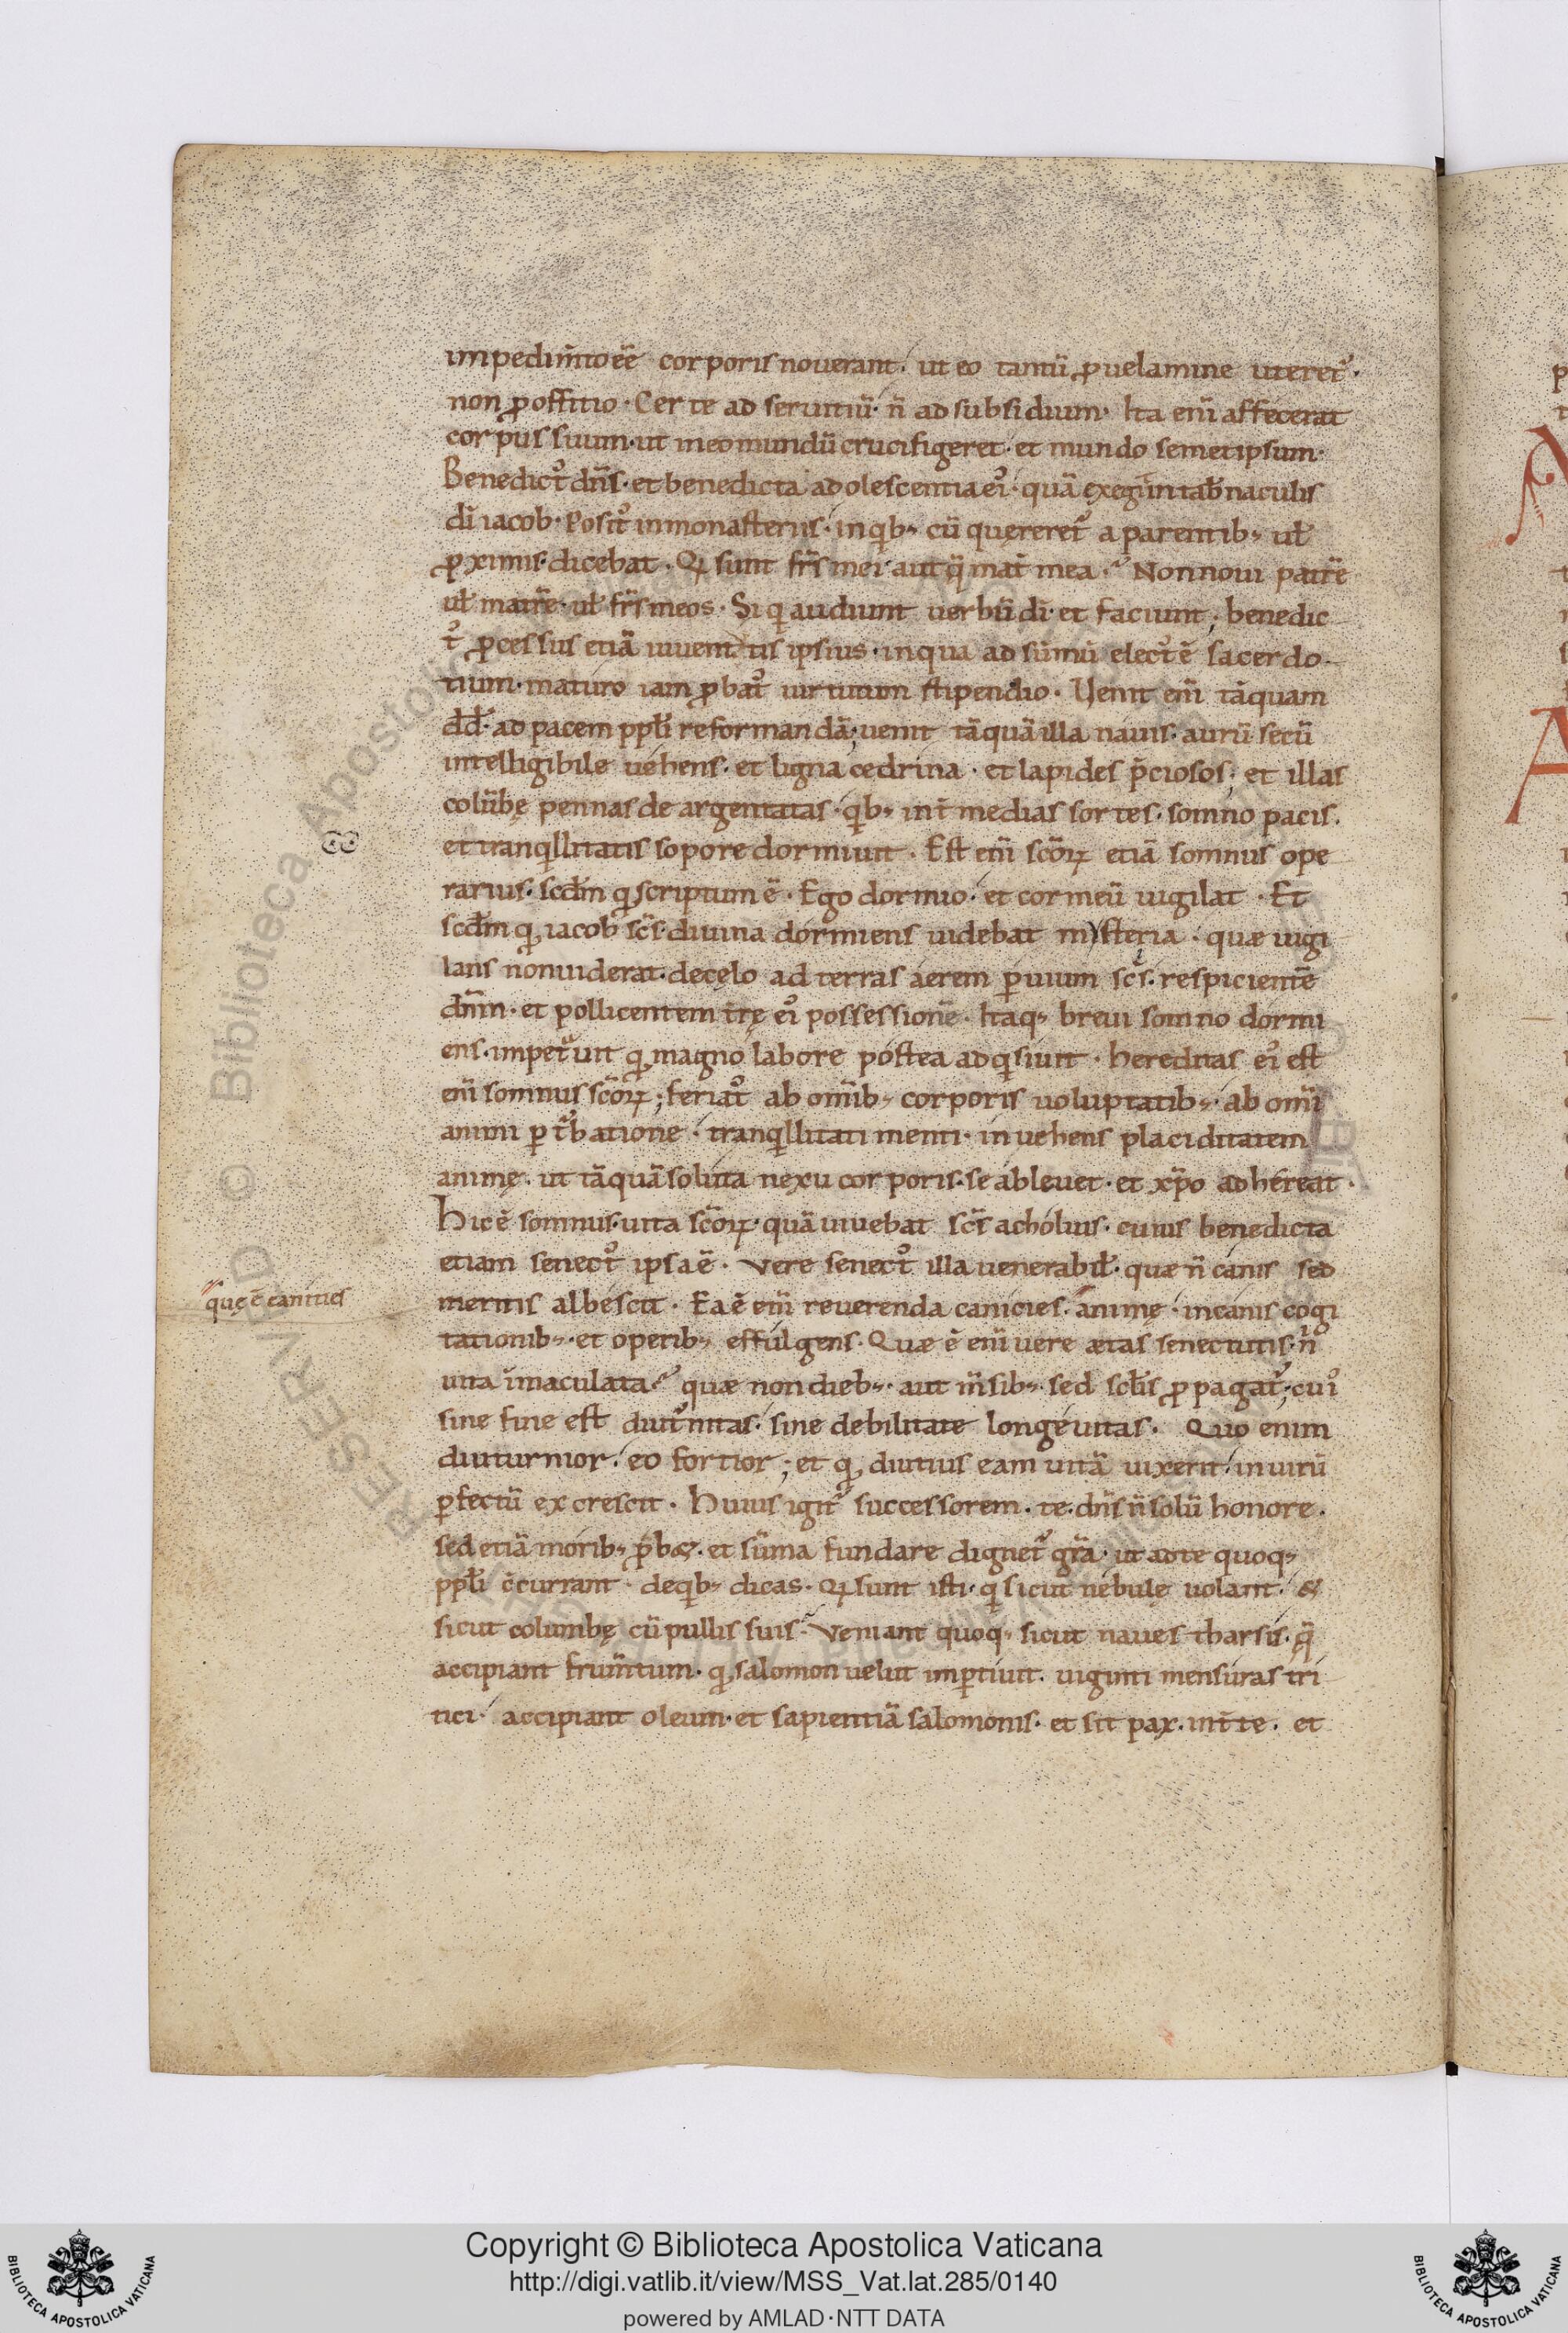 impedim̅to ee̅ corporis nouerant · ut eo tantu̅ ꝓ uelamine uteret᷒ ·
non ꝓ offitio · Certe ad seruitiu̅ · n̅ ad subsidium · Ita eni̅ affecerat
corpus suum · ut in eo mundu̅ crucifigeret · et mundo semetipsum ·
Benedict᷒ dn̅s · et benedicta adolescentia ei᷒ · qua̅ exegit in tab̅naculis
di̅ iacob · Posit᷒ in monasteriis · in qib; cu̅ quęreret᷒ a parentib; ul̅
ꝓximis · dicebat · Qi sunt fr̅s mei · aut q̅ mat̅ mea · Non noui patre̅
ul̅ matre̅ · ul̅ fr̅s meos · Si qi audiunt uerbu̅ di̅ · et faciunt ; benedic
t᷒ ꝓcessus etia̅ iuuentutis ipsius · in qua ad su̅mu̅ elect᷒ e̅ sacerdo
tium · maturo iam ꝓbat᷒ uirtutum stipendio · Uenit eni̅ ta̅quam
dd̅ · ad pacem ppl̅i reformanda̅ ; uenit ta̅qua̅ illa nauis · auru̅ secu̅
intelligibile uehens · et ligna cedrina · et lapides p̅ciosos ; et illas
colu̅bę pennas deargentatas · qib; int̅ medias sortes · somno pacis ·
et tranqillitatis sopore dormiuit · Est eni̅ sc̅oꝝ etia̅ somnus ope
rarius · scd̅m qđ scriptum e̅ · Ego dormio · et cor meu̅ uigilat · Et
scd̅m qđ iacob sc̅s · diuina dormiens uidebat mẏsteria · quæ uigi
lans non uiderat · de cęlo ad terras aerem ꝑuium sc̅s · respiciente̅
dn̅m · et pollicentem tr̅ę ei᷒ possessione̅ · Itaq; breui somno dormi
ens · impet᷒uit qđ magno labore postea adqisiuit · hereditas ei᷒ est
eni̅ somnus sc̅oꝝ ; feriat᷒ ab omi̅b; corporis uoluptatib; · ab omi̅
animi ꝑt᷒batione · tranqillitati menti · inuehens placiditatem
animę · ut ta̅qua̅ soluta nexu corporis · se ableuet · et xp̅o adhereat ·
Hic e̅ somnus · uita sc̅oꝝ · qua̅ uiuebat sc̅s acholius · cuius benedicta
etiam senect᷒ ipsa e̅ · Vere senect᷒ illa uenerabil̅ · quæ n̅ canis sed
meritis albescit · Ea e̅ eni̅ reuerenda canicies · animę · in canis cogi
quę e̅ canities
tationib; · et operib; effulgens · Quæ e̅ eni̅ uere ætas senectutis · n̊
uita i̅maculata · quæ non dieb; · aut m̅sib; · sed scl̅is ꝓpagat᷒ ; cui᷒
sine fine est diut᷒nitas · sine debilitate longeuitas · Quo enim
diuturnior · eo fortior ; et qđ diutius eam uita̅ uixerit · in uiru̅
ꝑfectu̅ excrescit · Huius igit᷒ successorem · te · dn̅s n̅ solu̅ honore ·
sed etia̅ morib; p̅b& · et su̅ma fundare dignet᷒ gr̅a · ut ad te quoq;
ppl̅i c̅currant · de qib; dicas · Qi sunt isti · qi sicut nebulę uolant · &
sicut columbę cu̅ pullis suis · Veniant quoq; sicut naues tharsis · q̅
accipiant frum̅tum · qđ salomon uelut imꝑtiuit · uiginti mensuras tri
tici · accipiant oleum · et sapientia̅ salomonis · et sit pax · int̅ te · et
Copyright © Biblioteca Apostolica Vaticana
http://digi.vatlib.it/view/MSS_Vat.lat.285/0140
powered by AMLAD·NTT DATA
BIBLIOTECA APOSTOLICA VATICANA
BIBLIOTECA APOSTOLICA VATICANA